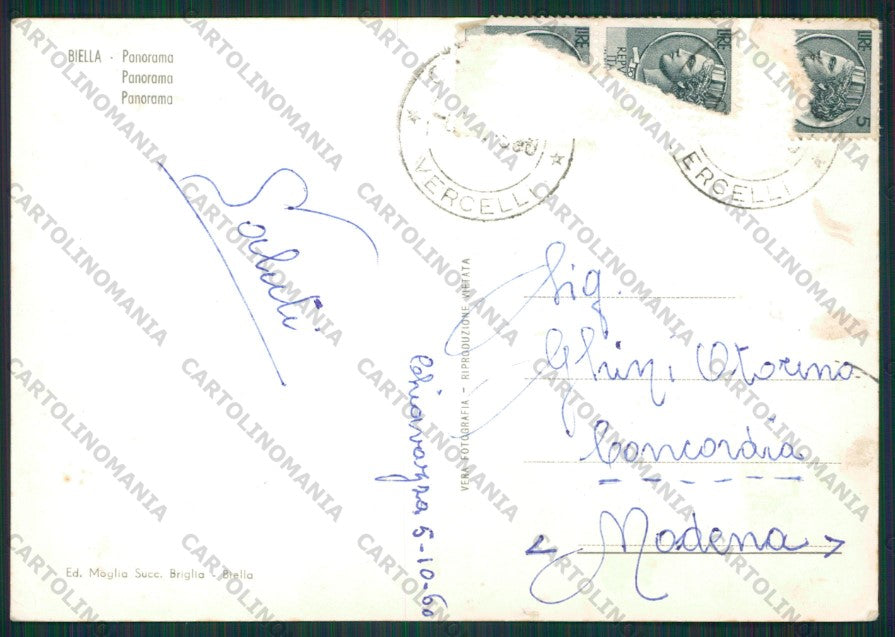 BIELLA - Panorama
Panorama
Panorama
LIRE
REPV
LIRE
LIRE
5
VERCELLI
ERCELLI
Saluti
Sig.
Ghini Otorino
Concordia
< Modena >
5-10-60
VERA FOTOGRAFIA - RIPRODUZIONE VIETATA
Ed. Moglia Succ. Briglia - Biella
CARTOLINOMANIA